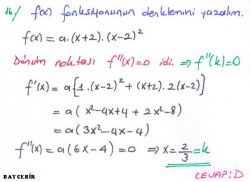 16/ f(x) fonksiyonunun denklemini yazalım.
f(x) = a.(x+2).(x-2)²
Dönüm noktası f''(x)=0 idi. ⇒ f''(k)=0
f'(x) = a[1.(x-2)² + (x+2).2(x-2)]
= a(x²-4x+4 + 2x²-8)
= a(3x²-4x-4)
f''(x) = a(6x-4) = 0 ⇒ x = 2/3 = k
CEVAP: D
BAYCEBİR